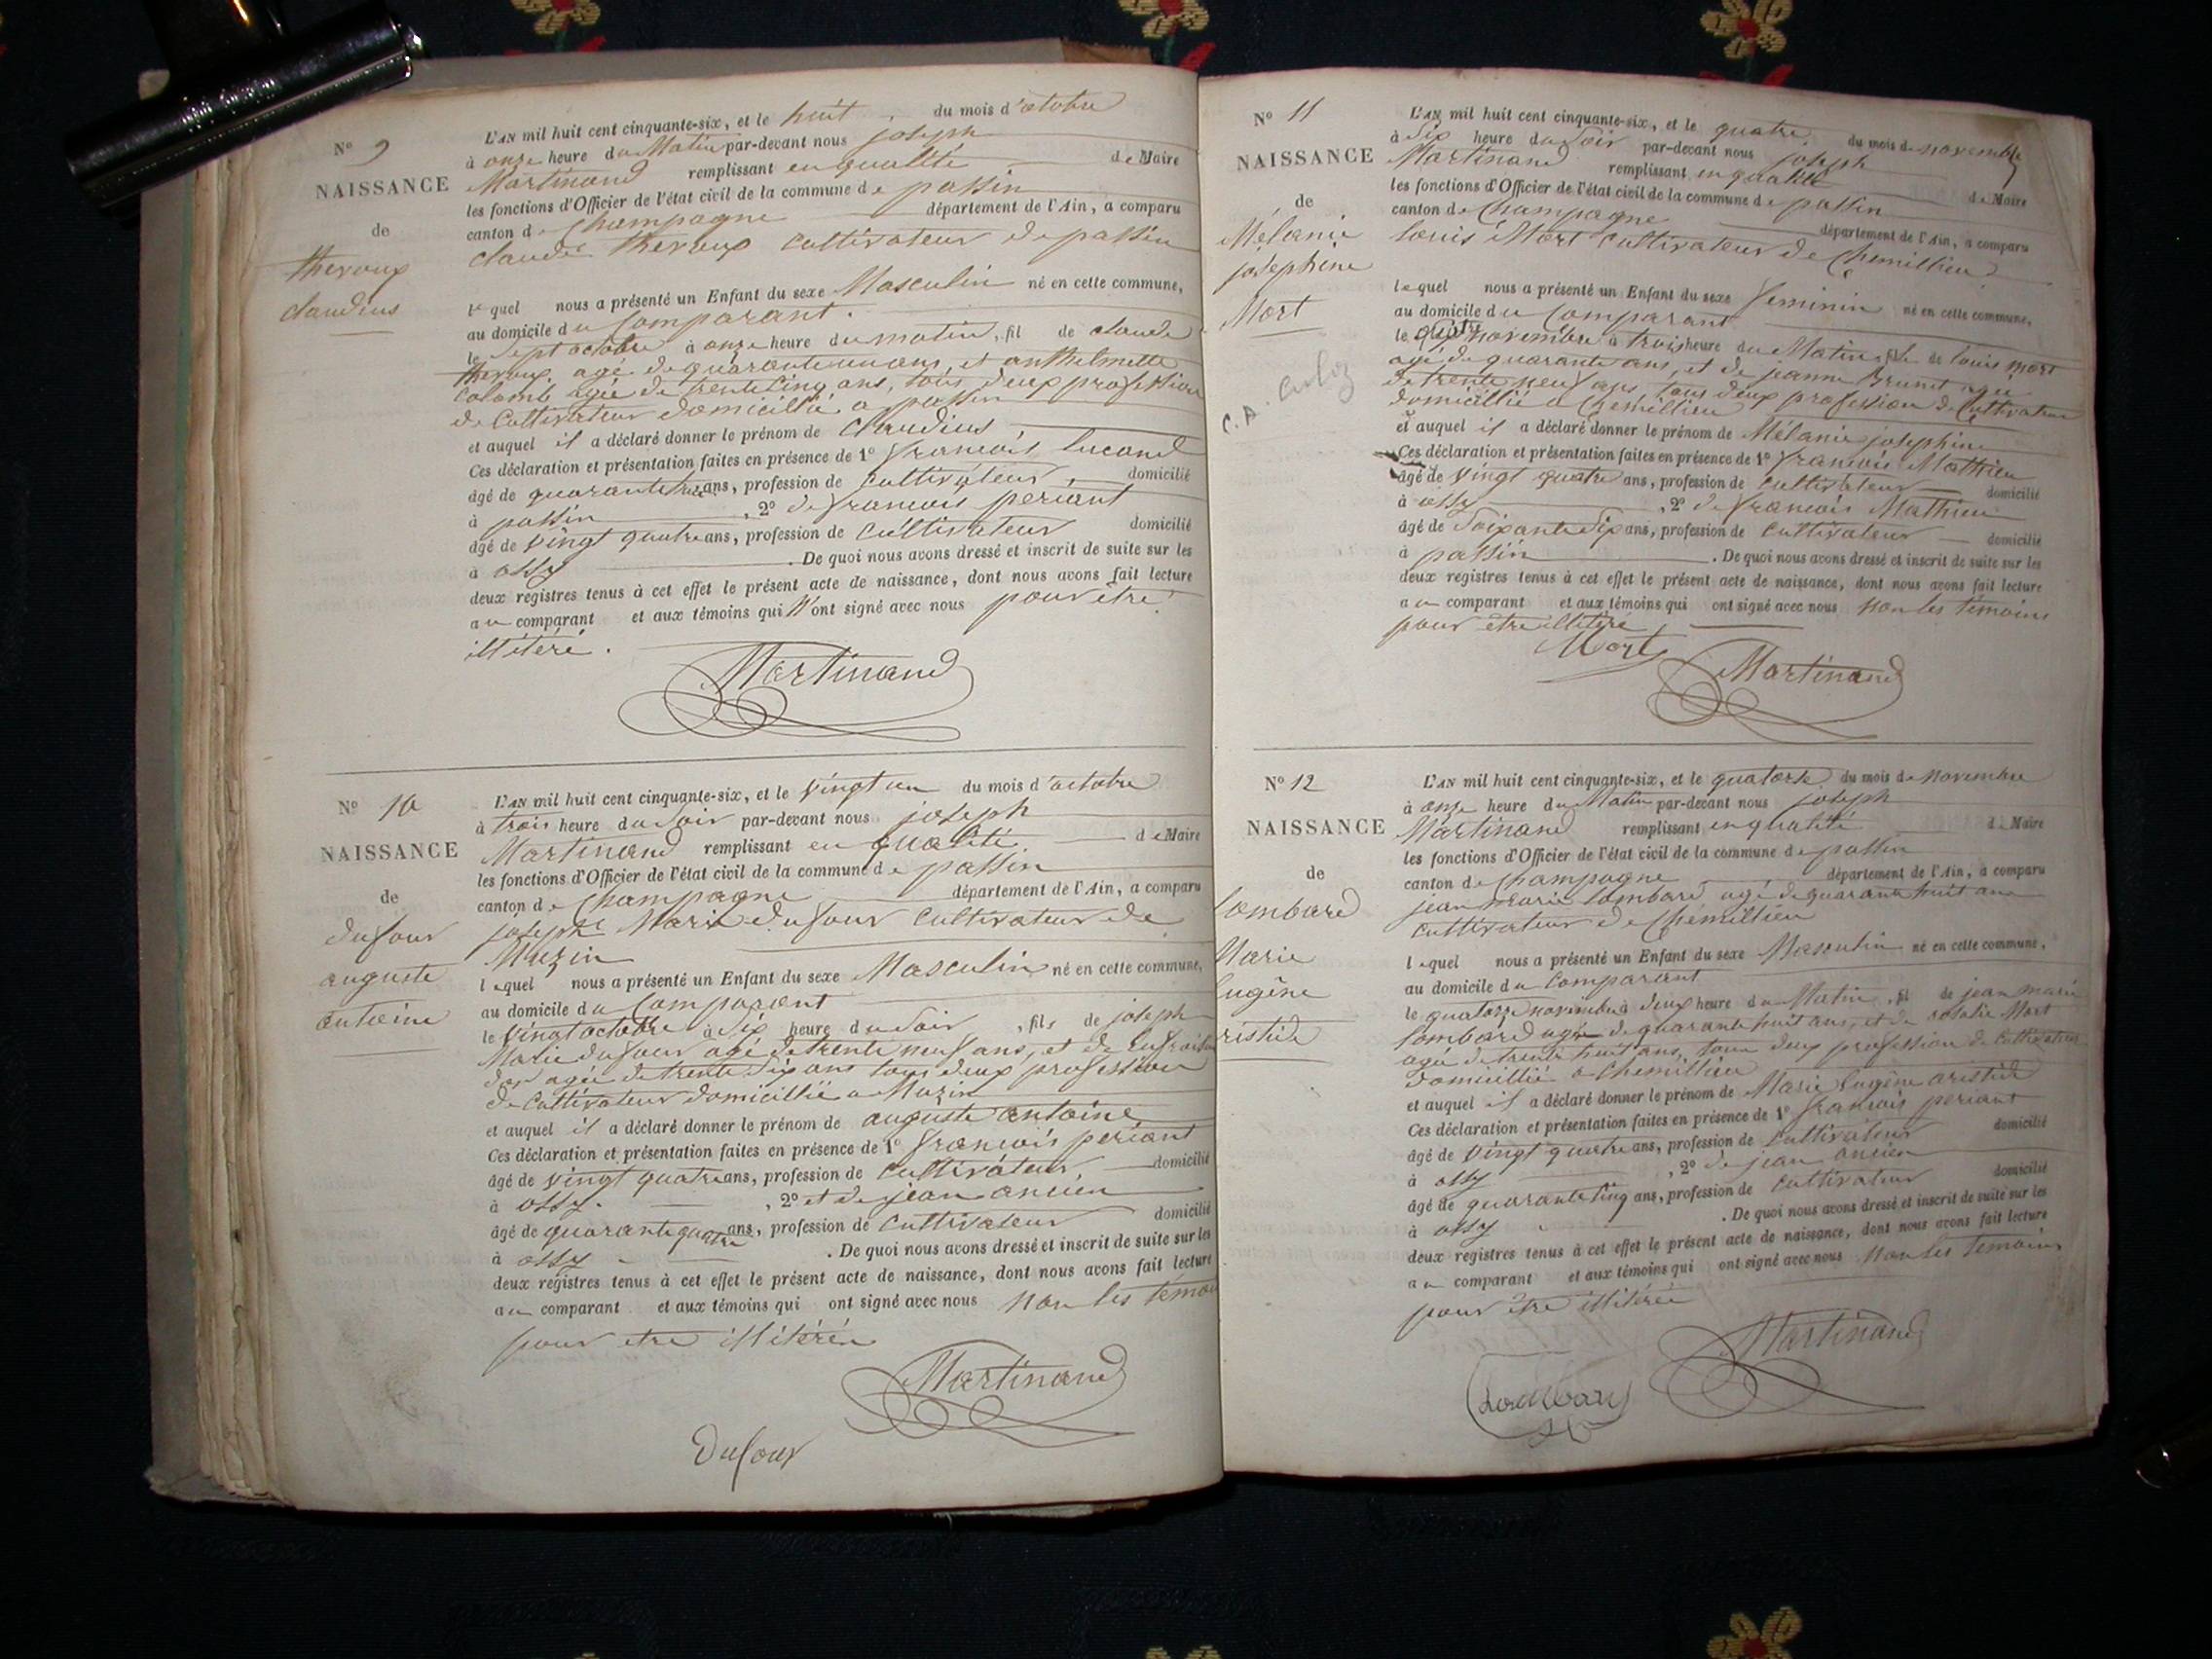 N° 9
NAISSANCE
de
theroux
claudius
L'AN mil huit cent cinquante-six, et le huit du mois d'octobre
à onze heure du Matin par-devant nous joseph
Martinand remplissant en qualité de Maire
les fonctions d'Officier de l'état civil de la commune de passin
canton de Champagne département de l'Ain, a comparu
claude theroux cultivateur de passin
lequel nous a présenté un Enfant du sexe Masculin né en cette commune,
au domicile du Comparant.
le sept octobre à onze heure du matin, fil de claude
theroux agé de quarante un ans, et anthelmette
Colomb agée de trente cinq ans, tous deux profession
de Cultivateur domicillié a passin
et auquel il a déclaré donner le prénom de Claudius
Ces déclaration et présentation faites en présence de 1° francois lucand
âgé de quarante ans, profession de Cultivateur, domicilié
à passin, 2° de francois periant
âgé de vingt quatre ans, profession de cultivateur domicilié
à ossy. De quoi nous avons dressé et inscrit de suite sur les
deux registres tenus à cet effet le présent acte de naissance, dont nous avons fait lecture
au comparant et aux témoins qui n'ont signé avec nous pour etre
illitéré.
Martinand
N° 10
NAISSANCE
de
dufour
auguste
antoine
L'AN mil huit cent cinquante-six, et le vingt un du mois d'octobre
à trois heure du soir par-devant nous joseph
Martinand remplissant en qualité de Maire
les fonctions d'Officier de l'état civil de la commune de passin
canton de Champagne département de l'Ain, a comparu
joseph Marie dufour Cultivateur de
Muzin
lequel nous a présenté un Enfant du sexe Masculin né en cette commune,
au domicile du Comparant
le vingt octobre à six heure du soir, fils de joseph
Marie dufour agé de trente neuf ans, et de
agée de trente six ans tous deux profession
de Cultivateur domicillié a Muzin
et auquel il a déclaré donner le prénom de auguste antoine
Ces déclaration et présentation faites en présence de 1° francois periant
âgé de vingt quatre ans, profession de cultivateur, domicilié
à ossy. , 2° et de jean ancien
âgé de quarante quatre ans, profession de cultivateur domicilié
à ossy. De quoi nous avons dressé et inscrit de suite sur les
deux registres tenus à cet effet le présent acte de naissance, dont nous avons fait lecture
au comparant et aux témoins qui ont signé avec nous non les témoi
pour etre illitéré
Martinand
Dufour
N° 11
NAISSANCE
de
Mélanie
josephine
Mort
C.A. Culoz
L'AN mil huit cent cinquante-six, et le quatre du mois de novembre
à six heure du soir par-devant nous joseph
Martinand remplissant en qualité de Maire
les fonctions d'Officier de l'état civil de la commune de passin
canton de Champagne département de l'Ain, a comparu
louis Mort Cultivateur de Chemillieu
lequel nous a présenté un Enfant du sexe feminin né en cette commune,
au domicile du Comparant
le quatre novembre à trois heure du Matin, fil de louis mort
agé de quarante ans, et de jeanne Brunet agée
de trente neuf ans, tous deux profession de Cultivateur
domicillié a Chemillieu
et auquel il a déclaré donner le prénom de Mélanie josephine
Ces déclaration et présentation faites en présence de 1° francois Mathieu
âgé de vingt quatre ans, profession de cultivateur domicilié
à ossy, 2° de francois Mathieu
âgé de soixante six ans, profession de cultivateur domicilié
à passin. De quoi nous avons dressé et inscrit de suite sur les
deux registres tenus à cet effet le présent acte de naissance, dont nous avons fait lecture
au comparant et aux témoins qui ont signé avec nous non les témoins
pour etre illitéré
Mort
Martinand
N° 12
NAISSANCE
de
lombard
Marie
Eugêne
ristide
L'AN mil huit cent cinquante-six, et le quatorze du mois de novembre
à onze heure du Matin par-devant nous joseph
Martinand remplissant en qualité de Maire
les fonctions d'Officier de l'état civil de la commune de passin
canton de Champagne département de l'Ain, a comparu
jean marie lombard agé de quarante huit ans
cultivateur de Chemillieu
lequel nous a présenté un Enfant du sexe Masculin né en cette commune,
au domicile du Comparant
le quatorze novembre à deux heure du Matin, fil de jean marie
lombard agé de quarante huit ans, et de rosalie Mort
agée de trente huit ans, tous deux profession de Cultivateur
domicillié a Chemillieu
et auquel il a déclaré donner le prénom de Marie Eugêne aristide
Ces déclaration et présentation faites en présence de 1° francois periant
âgé de vingt quatre ans, profession de Cultivateur domicilié
à ossy, 2° de jean ancien
âgé de quarante cinq ans, profession de cultivateur domicilié
à ossy. De quoi nous avons dressé et inscrit de suite sur les
deux registres tenus à cet effet le présent acte de naissance, dont nous avons fait lecture
au comparant et aux témoins qui ont signé avec nous non les temoins
pour être illitérée
Martinand
Lombard